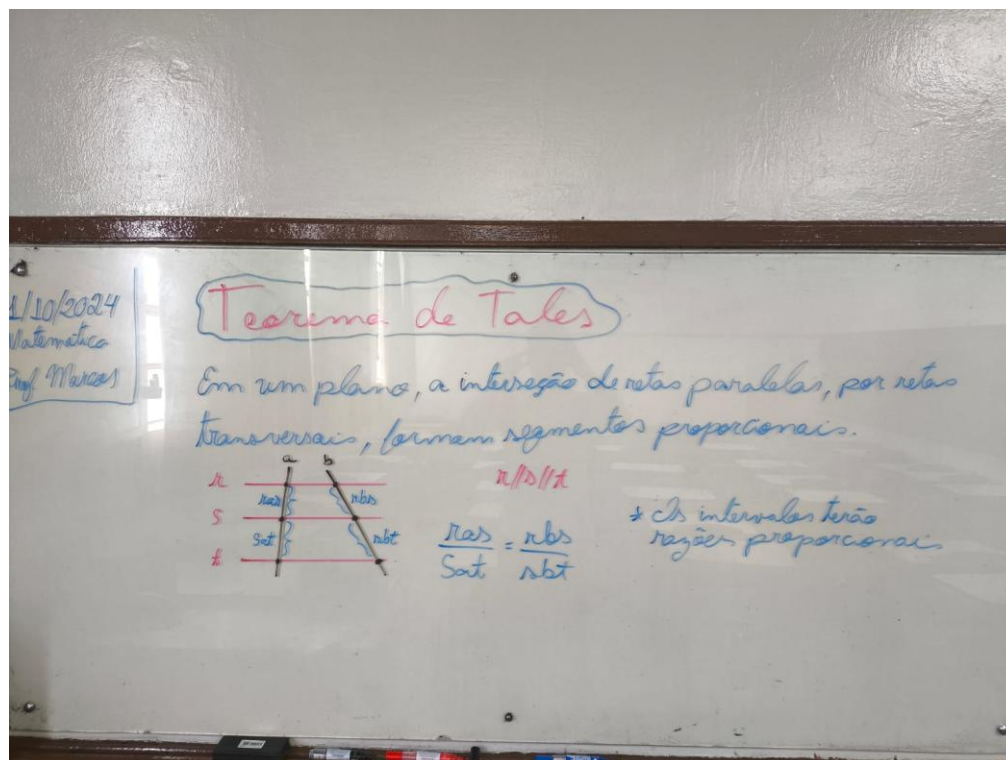 1/10/2024
Matemática
Prof Marcos
Teorema de Tales
Em um plano, a interseção de retas paralelas, por retas
transversais, formam segmentos proporcionais.
a b
r
ras rbs
s
sat sbt
t
r//s//t
ras/sat = rbs/sbt
* Os intervalos terão
razões proporcionais